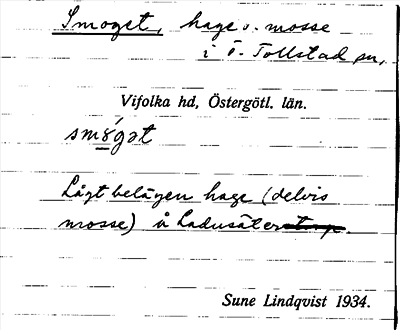 Smoget, hage o. mosse
i Ö. Tollstad sn,
Vifolka hd, Östergötl. län.
smǿgət
Lågt belägen hage (delvis
mosse) å Ladusäter.
Sune Lindqvist 1934.